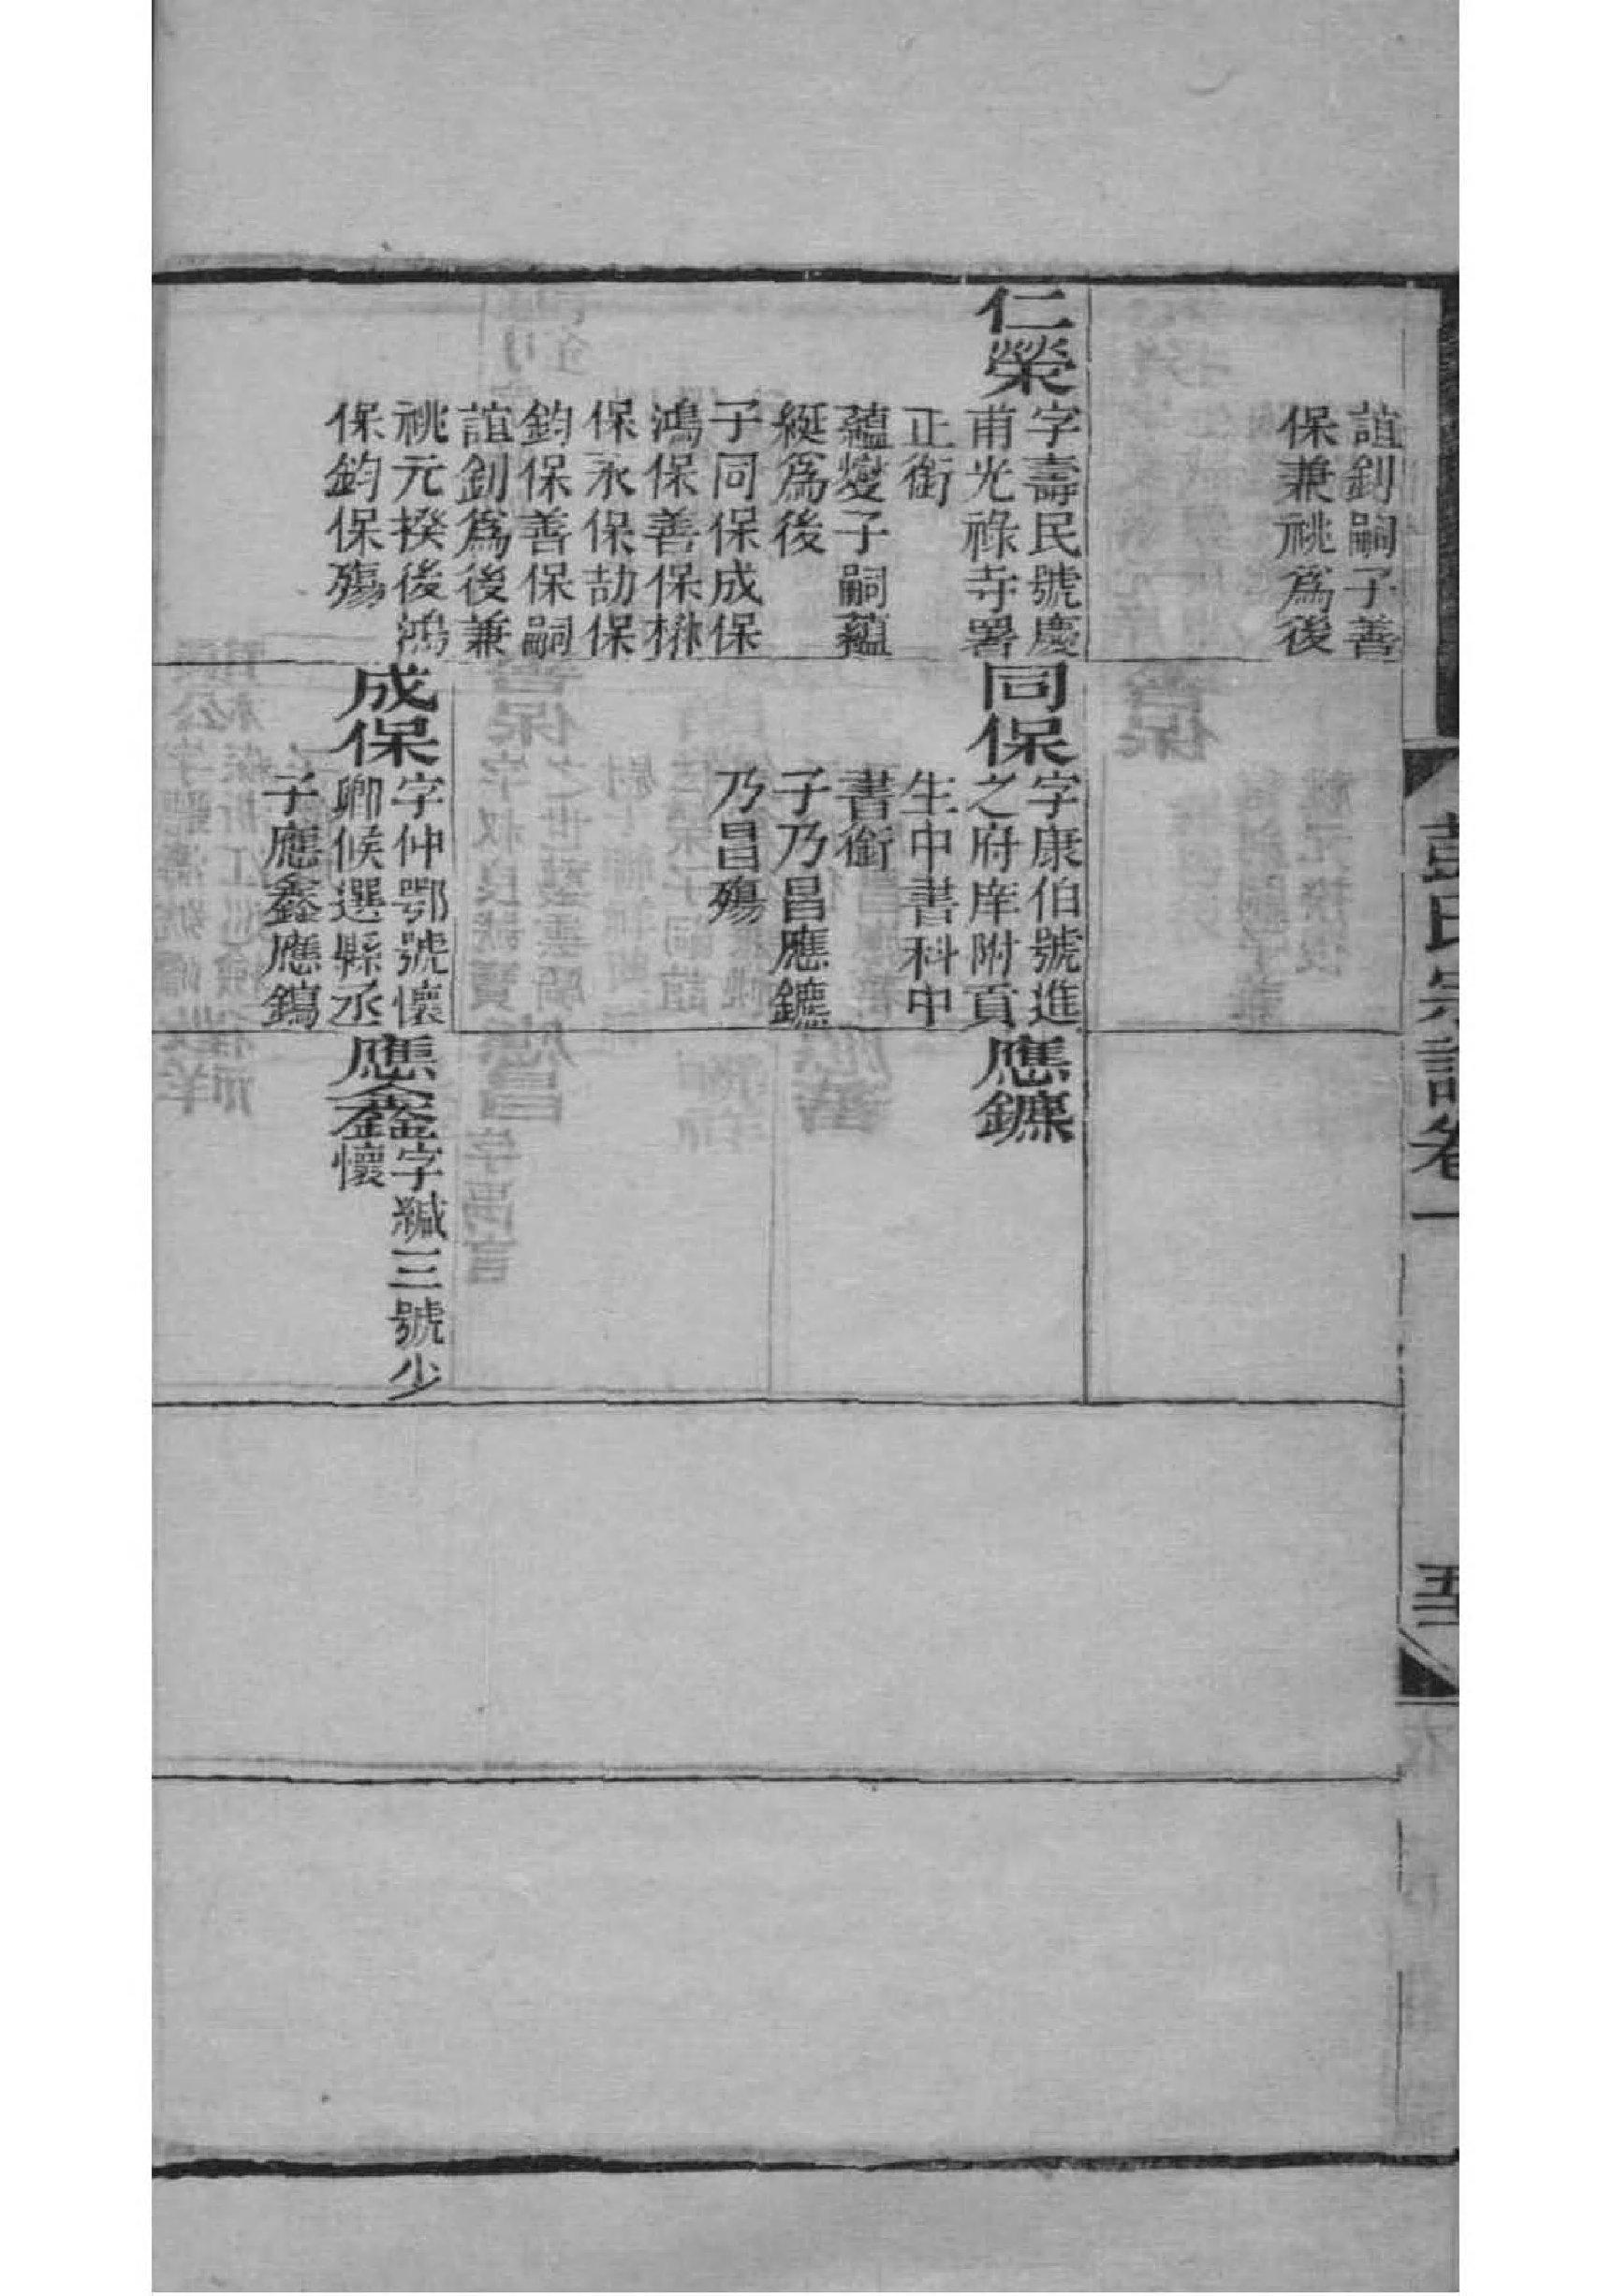 誼釗嗣子善
保兼祧為後
仁榮
字壽民號慶
甫光祿寺署
正銜
蘊燮子嗣蘊
綖為後
子同保成保
鴻保善保楙
保永保劼保
鈞保善保嗣
誼釗為後兼
祧元揆後鴻
保鈞保殤
同保
字康伯號進
之府庠附貢
生中書科中
書銜
子乃昌應鑣
乃昌殤
成保
字仲鄂號懷
卿候選縣丞
子應鑫應鎢
應鑣
應鑫
字緘三號少
懷
彭氏宗譜卷一